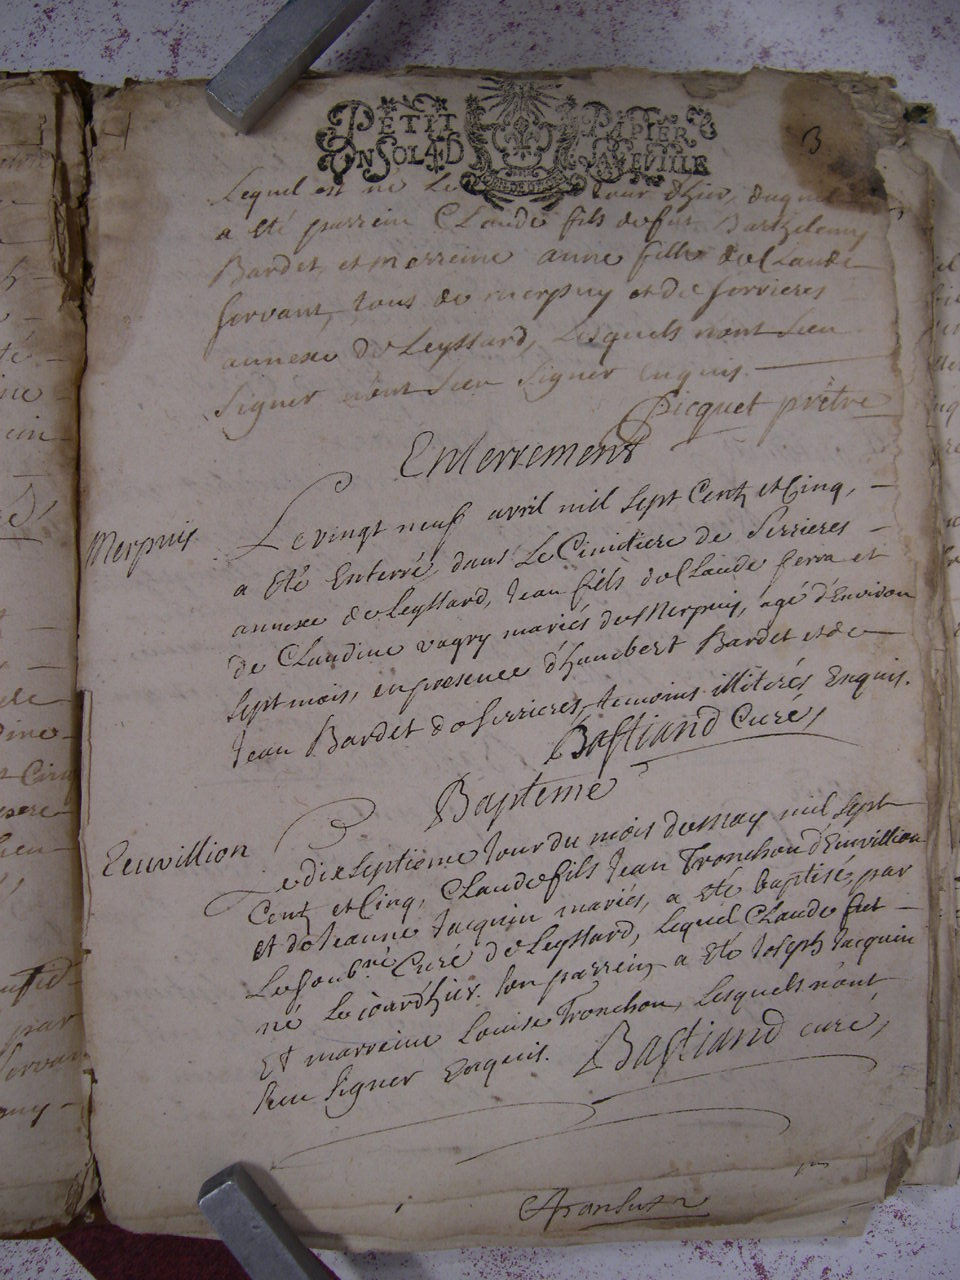 PETIT PAPIER
UN SOL 4 D LA FEUILLE
3
Lequel est né le jour d'hier, duquel
a été parrein Claude fils de fut Barthelemy
Bardet et marreine anne fille de Claude
Servant, tous de merpuy et de serrieres
annexe de Leyssard, Lesquels n'ont sceu
signer n'ont sceu signer enquis.
Picquet prêtre
Enterrement
Merpuis
Le vingt neuf avril mil sept Cent et Cinq,
a été Enterré, dans Le Cimitiere de Serrieres
annexe de Leyssard, Jean fils de Claude ferra et
de Claudine vagry mariés de Merpuy, agé d'Environ
sept mois, en presence d'humbert Bardet et de
Jean Bardet de serrieres, temoins illiterés Enquis.
Bastiand Curé,
Bapteme
Eeuvillion
Le dixseptieme Jour du mois de May mil sept
Cent et Cinq, Claude fils Jean Tronchou d'Euvillion
et de Jeanne Jacquin mariés, a été baptisé, par
Le soubné Curé de Leyssard, lequel Claude fut
né Le jour d'hier. son parrein a été Joseph Jacquin
Et marreine Louise Tronchou, Lesquels n'ont
sceu signer Enquis. Bastiand curé,